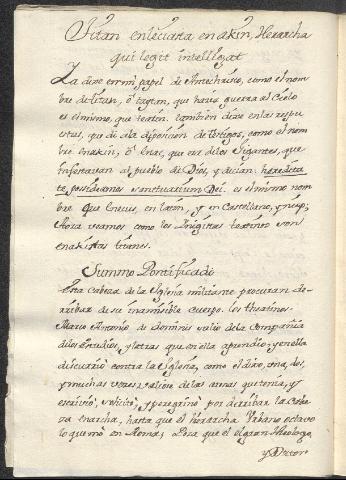 Titan enleuiata en akin, Herarcha
qui legit intellegat
La dixe en mi papel de Antechristo, como el nom
bre de titan, ô taytan, que hauia guerra al Cielo
es el mismo, que teatin. tambien dixe en las respu
estas, que di a la disposición de testigos, como el nom
bre enakin, ô Enac, que era de los Gigantes, que
infestauan al pueblo de Dios, y decian, heredita
te posideamos sanctuarium Dei. es el mismo nom
bre que en latin, y en Castellano,
Aora veamos como los teatinos son
enakistas
Summo Pontificado
Esta cabeza de la Yglesia militante procuran de-
rribar de su inamisible cuerpo. los theatinos
Marco Antonio de dominis salio de la Compañia
de los estudios, y letras que en ella aprendio; y en ella
discurrio contra la Yglesia, como el dixo, una, dos,
y muchas veces, valiose de las armas que tenia, y
escriuio, solicitò, y peregrinò por derribar la Cabe
za enarcha, hasta que el herarcha Vrbano octavo
lo quemò en Roma; Pora que el el gran theologo
y Doctor